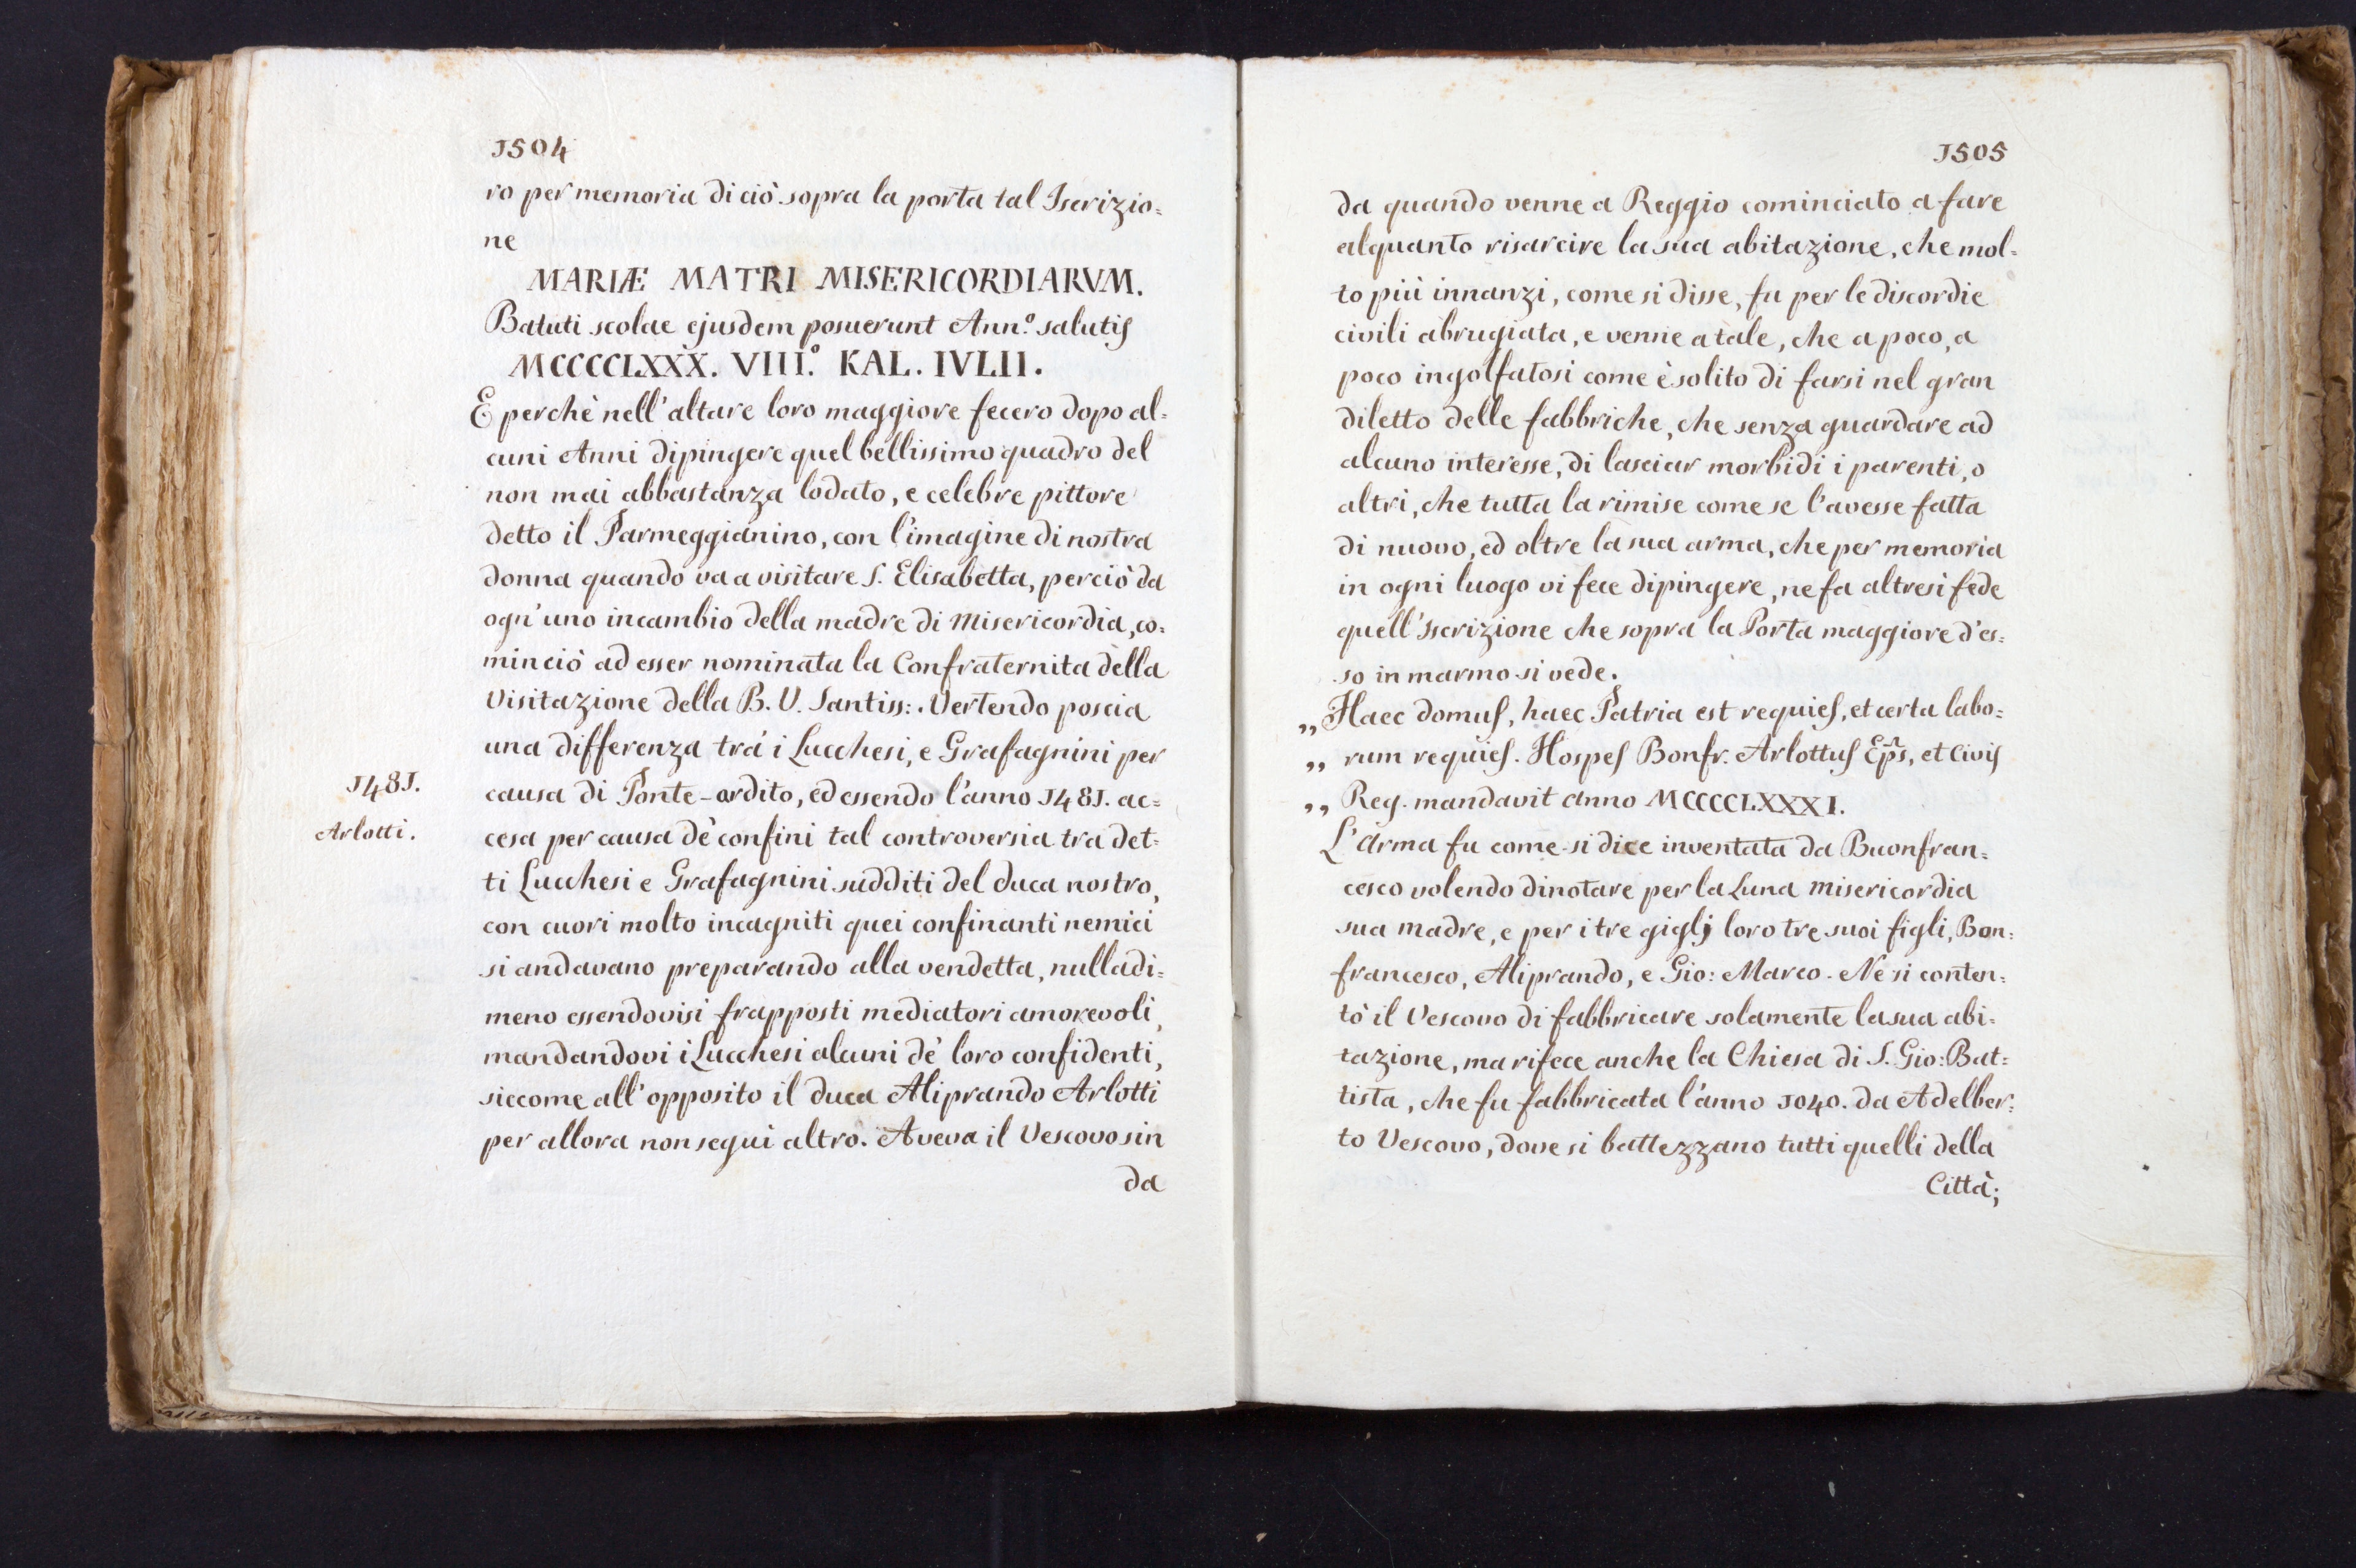 1504
ro per memoria di ciò sopra la porta tal Iscrizio=
ne
MARIÆ MATRI MISERICORDIARVM.
Batuti scolae ejusdem posuerunt Ann.º salutis
MCCCCLXXX. VIII.º KAL. IVLII.
E perchè nell'altare loro maggiore fecero dopo al=
cuni Anni dipingere quel bellissimo quadro del
non mai abbastanza lodato, e celebre pittore
detto il Parmeggianino, con l'imagine di nostra
donna quando va a visitare S. Elisabetta, perciò da
ogn'uno incambio della madre di Misericordia, co=
minciò ad esser nominata la Confraternita della
Visitazione della B. V. Santiss:. Vertendo poscia
una differenza trà i Lucchesi, e Grafagnini per
1481.
causa di Ponte-ardito, ed essendo l'anno 1481. ac=
Arlotti.
cesa per causa dè confini tal controversia tra det=
ti Lucchesi e Grafagnini sudditi del duca nostro,
con cuori molto incagniti quei confinanti nemici
si andavano preparando alla vendetta, nulladi=
meno essendovisi frapposti mediatori amorevoli,
mandandovi i Lucchesi alcuni dè loro confidenti,
siccome all'opposito il duca Aliprando Arlotti
per allora non seguì altro. Aveva il Vescovo sin
da
1505
da quando venne a Reggio cominciato a fare
alquanto risarcire la sua abitazione, che mol=
to più innanzi, come si disse, fu per le discordie
civili abrugiata, e venne a tale, che a poco, a
poco ingolfatosi come è solito di farsi nel gran
diletto delle fabbriche, che senza guardare ad
alcuno interesse, di lasciar morbidi i parenti, o
altri, che tutta la rimise come se l'avesse fatta
di nuovo, ed oltre la sua arma, che per memoria
in ogni luogo vi fece dipingere, ne fa altresì fede
quell'Iscrizione che sopra la Porta maggiore d'es=
so in marmo si vede.
,, Haec domus, haec Patria est requies, et certa labo=
,, rum requies. Hospes Bonfr. Arlottus Ep̃s, et Civis
,, Reg. mandavit Anno MCCCCLXXXI.
L'Arma fu come si dice inventata da Buonfran=
cesco volendo dinotare per la Luna Misericordia
sua madre, e per i tre giglj loro tre suoi figli, Bon=
francesco, Aliprando, e Gio: Marco. Ne si conten=
tò il Vescovo di fabbricare solamente la sua abi=
tazione, ma rifece anche la Chiesa di S. Gio: Bat=
tista, che fu fabbricata l'anno 1040. da Adelber=
to Vescovo, dove si battezzano tutti quelli della
Città;